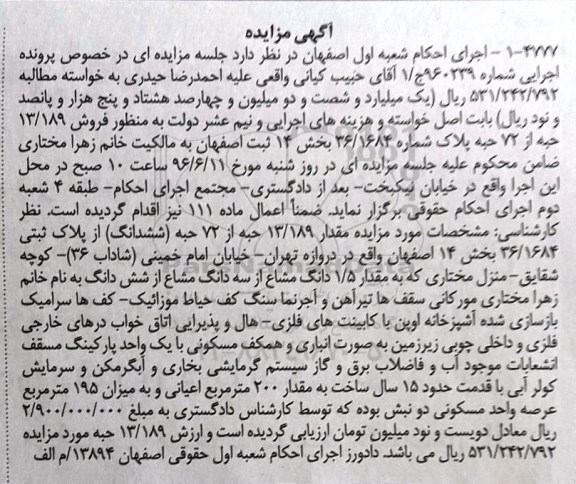 آگهی مزایده
۱-۴۷۷۷ - اجرای احکام شعبه اول اصفهان در نظر دارد جلسه مزایده ای در خصوص پرونده
اجرایی شماره ۹۶۰۲۳۹ج/۱ آقای حبیب کیانی واقعی علیه احمدرضا حیدری به خواسته مطالبه
۵۳۱/۲۴۲/۷۹۲ ریال (یک میلیارد و شصت و دو میلیون و چهارصد هشتاد و پنج هزار و پانصد
و نود ریال) بابت اصل خواسته و هزینه های اجرایی و نیم عشر دولت به منظور فروش ۱۳/۱۸۹
حبه از ۷۲ حبه پلاک شماره ۳۶/۱۶۸۴ بخش ۱۴ ثبت اصفهان به مالکیت خانم زهرا مختاری
ضامن محکوم علیه جلسه مزایده ای در روز شنبه مورخ ۹۶/۶/۱۱ ساعت ۱۰ صبح در محل
این اجرا واقع در خیابان نیکبخت- بعد از دادگستری- مجتمع اجرای احکام- طبقه ۴ شعبه
دوم اجرای احکام حقوقی برگزار نماید. ضمناً اعمال ماده ۱۱۱ نیز اقدام گردیده است. نظر
کارشناسی: مشخصات مورد مزایده مقدار ۱۳/۱۸۹ حبه از ۷۲ حبه (ششدانگ) از پلاک ثبتی
۳۶/۱۶۸۴ بخش ۱۴ اصفهان واقع در دروازه تهران- خیابان امام خمینی (شاداب ۳۶)- کوچه
شقایق- منزل مختاری که به مقدار ۱/۵ دانگ مشاع از سه دانگ مشاع از شش دانگ به نام خانم
زهرا مختاری مورکانی سقف ها تیرآهن و آجرنما سنگ کف حیاط موزائیک- کف ها سرامیک
بازسازی شده آشپزخانه اوپن با کابینت های فلزی- هال و پذیرایی اتاق خواب درهای خارجی
فلزی و داخلی چوبی زیرزمین به صورت انباری و همکف مسکونی با یک واحد پارکینگ مسقف
انشعابات موجود آب و فاضلاب برق و گاز سیستم گرمایشی بخاری و آبگرمکن و سرمایش
کولر آبی با قدمت حدود ۱۵ سال ساخت به مقدار ۲۰۰ مترمربع اعیانی و به میزان ۱۹۵ مترمربع
عرصه واحد مسکونی دو نبش بوده که توسط کارشناس دادگستری به مبلغ ۲/۹۰۰/۰۰۰/۰۰۰
ریال معادل دویست و نود میلیون تومان ارزیابی گردیده است و ارزش ۱۳/۱۸۹ حبه مورد مزایده
۵۳۱/۲۴۲/۷۹۲ ریال می باشد. دادورز اجرای احکام شعبه اول حقوقی اصفهان ۱۳۸۹۴/م الف